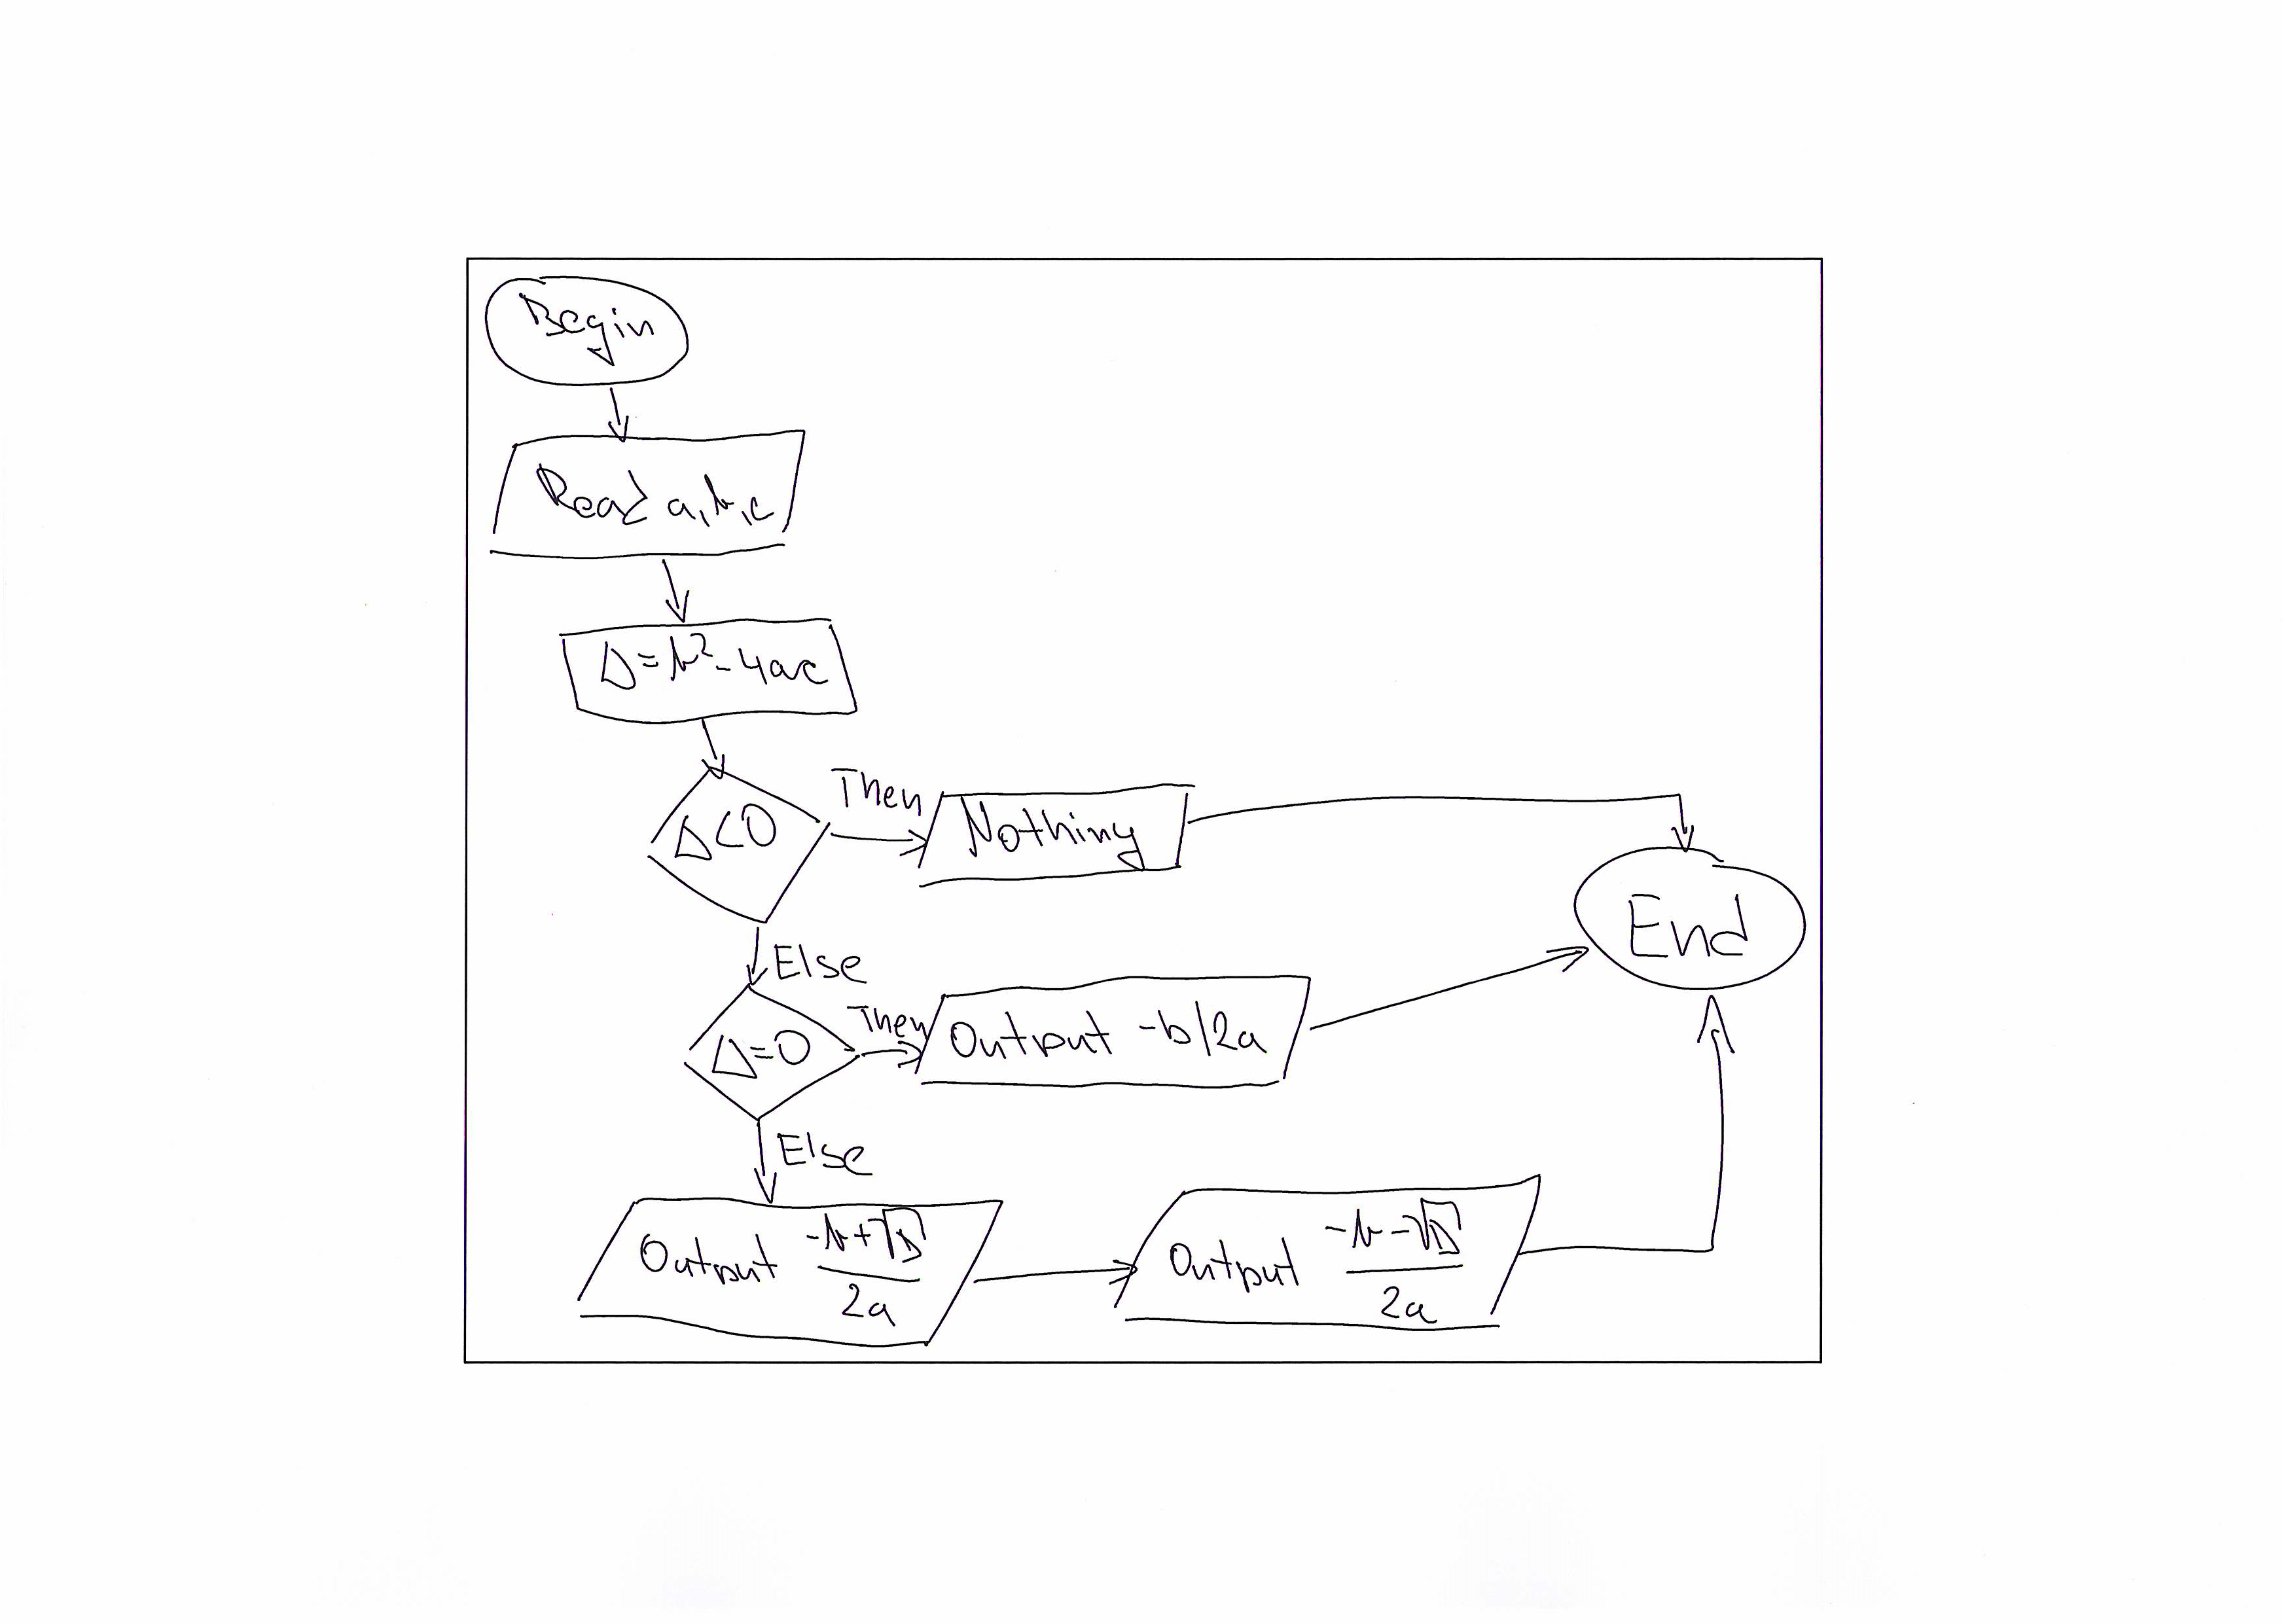 Begin
Read a,b,c
Δ=b²-4ac
Δ<0
Then
Nothing
End
Else
Δ=0
Then
Output -b/2a
Else
Output -b+√Δ
2a
Output -b-√Δ
2a